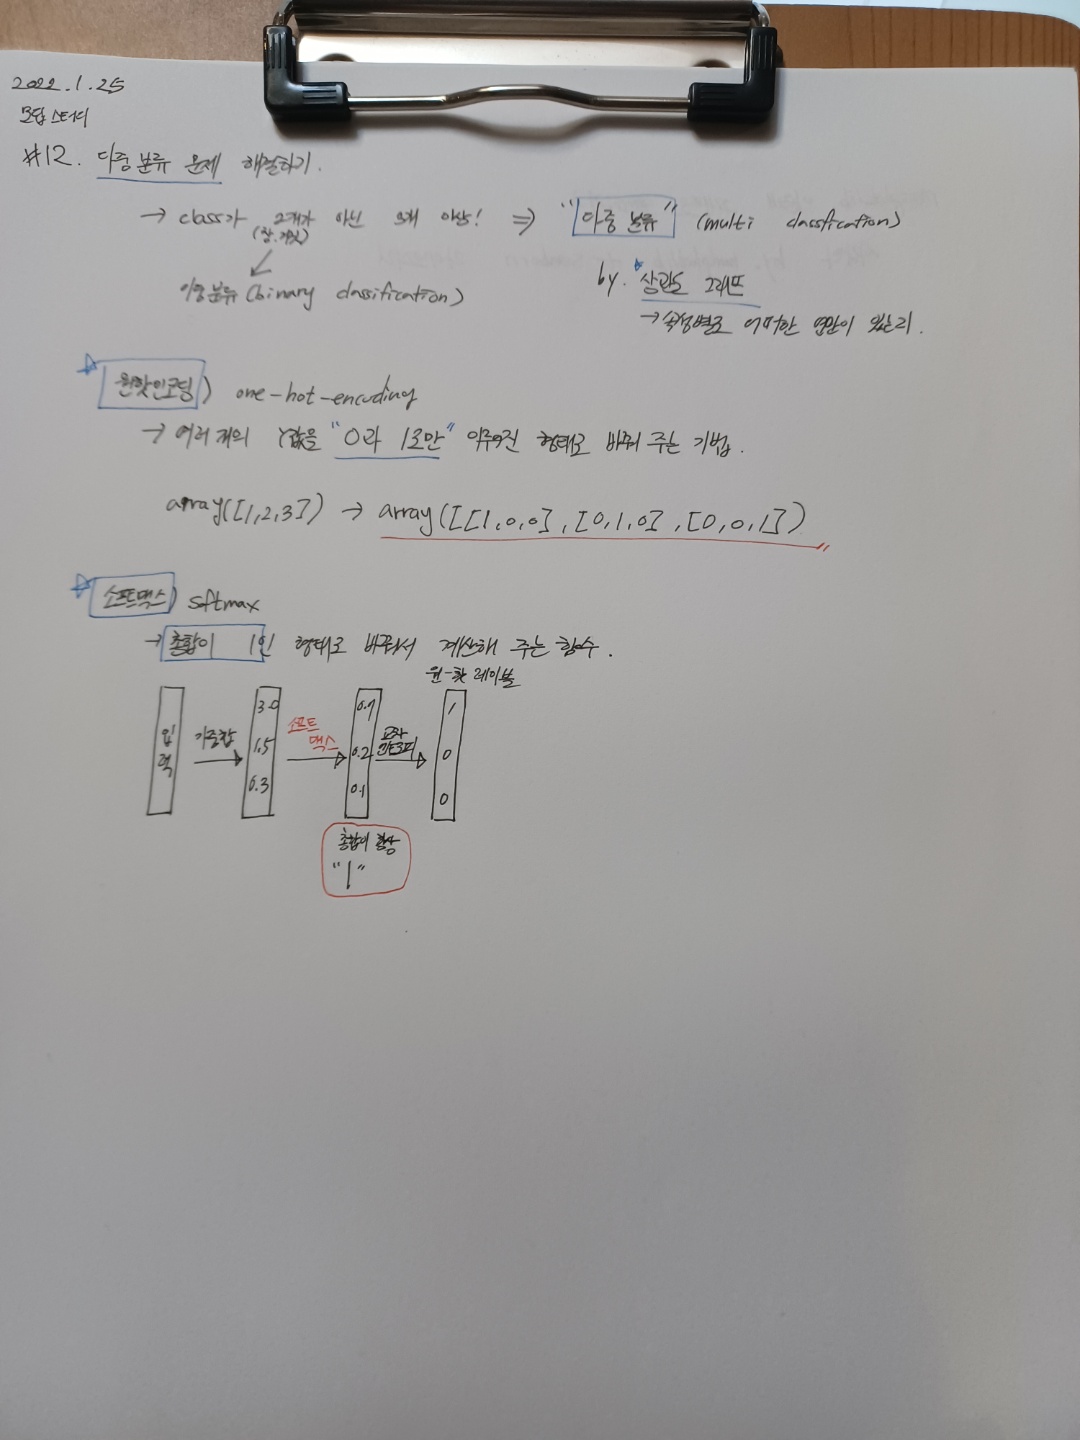 2022.1.25
모딥스터디
#12. 다중 분류 문제 해결하기.
→ class가 2개가 아닌 3개 이상! ⇒ "다중 분류" (multi classfication)
(참.거짓)
이항분류(binary classification)
by. *상관도 그래프
→ 속성별로 어떠한 연관이 있는지.
원핫인코딩) one-hot-encuding
→ 여러 개의 Y값을 "0과 1로만" 이루어진 형태로 바꿔 주는 기법.
array([1,2,3]) → array([[1,0,0],[0,1,0],[0,0,1])
소프트맥스) softmax
→ 총합이 1인 형태로 바꿔서 계산해 주는 함수.
원-핫 레이블
입력 가중합 3.0 1.5 0.3 소프트맥스 0.7 0.2 0.1 교차 엔트로피 1 0 0
총합이 항상
"1"